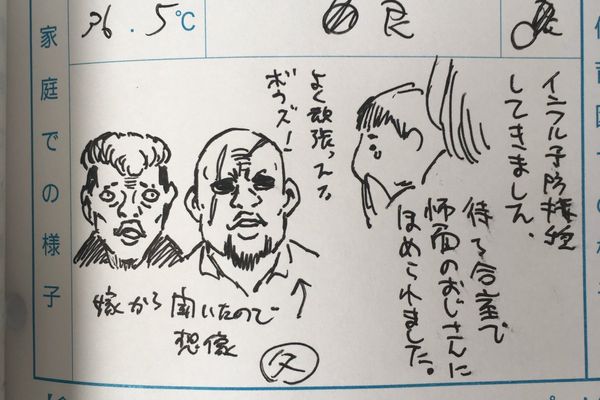 36.5℃
良
家庭での様子
インフル予防接種
してきました。
待ち合室で
怖面のおじさんに
ほめられました。
よく頑張ったな
ボウズ!
嫁から聞いたので
想像
父